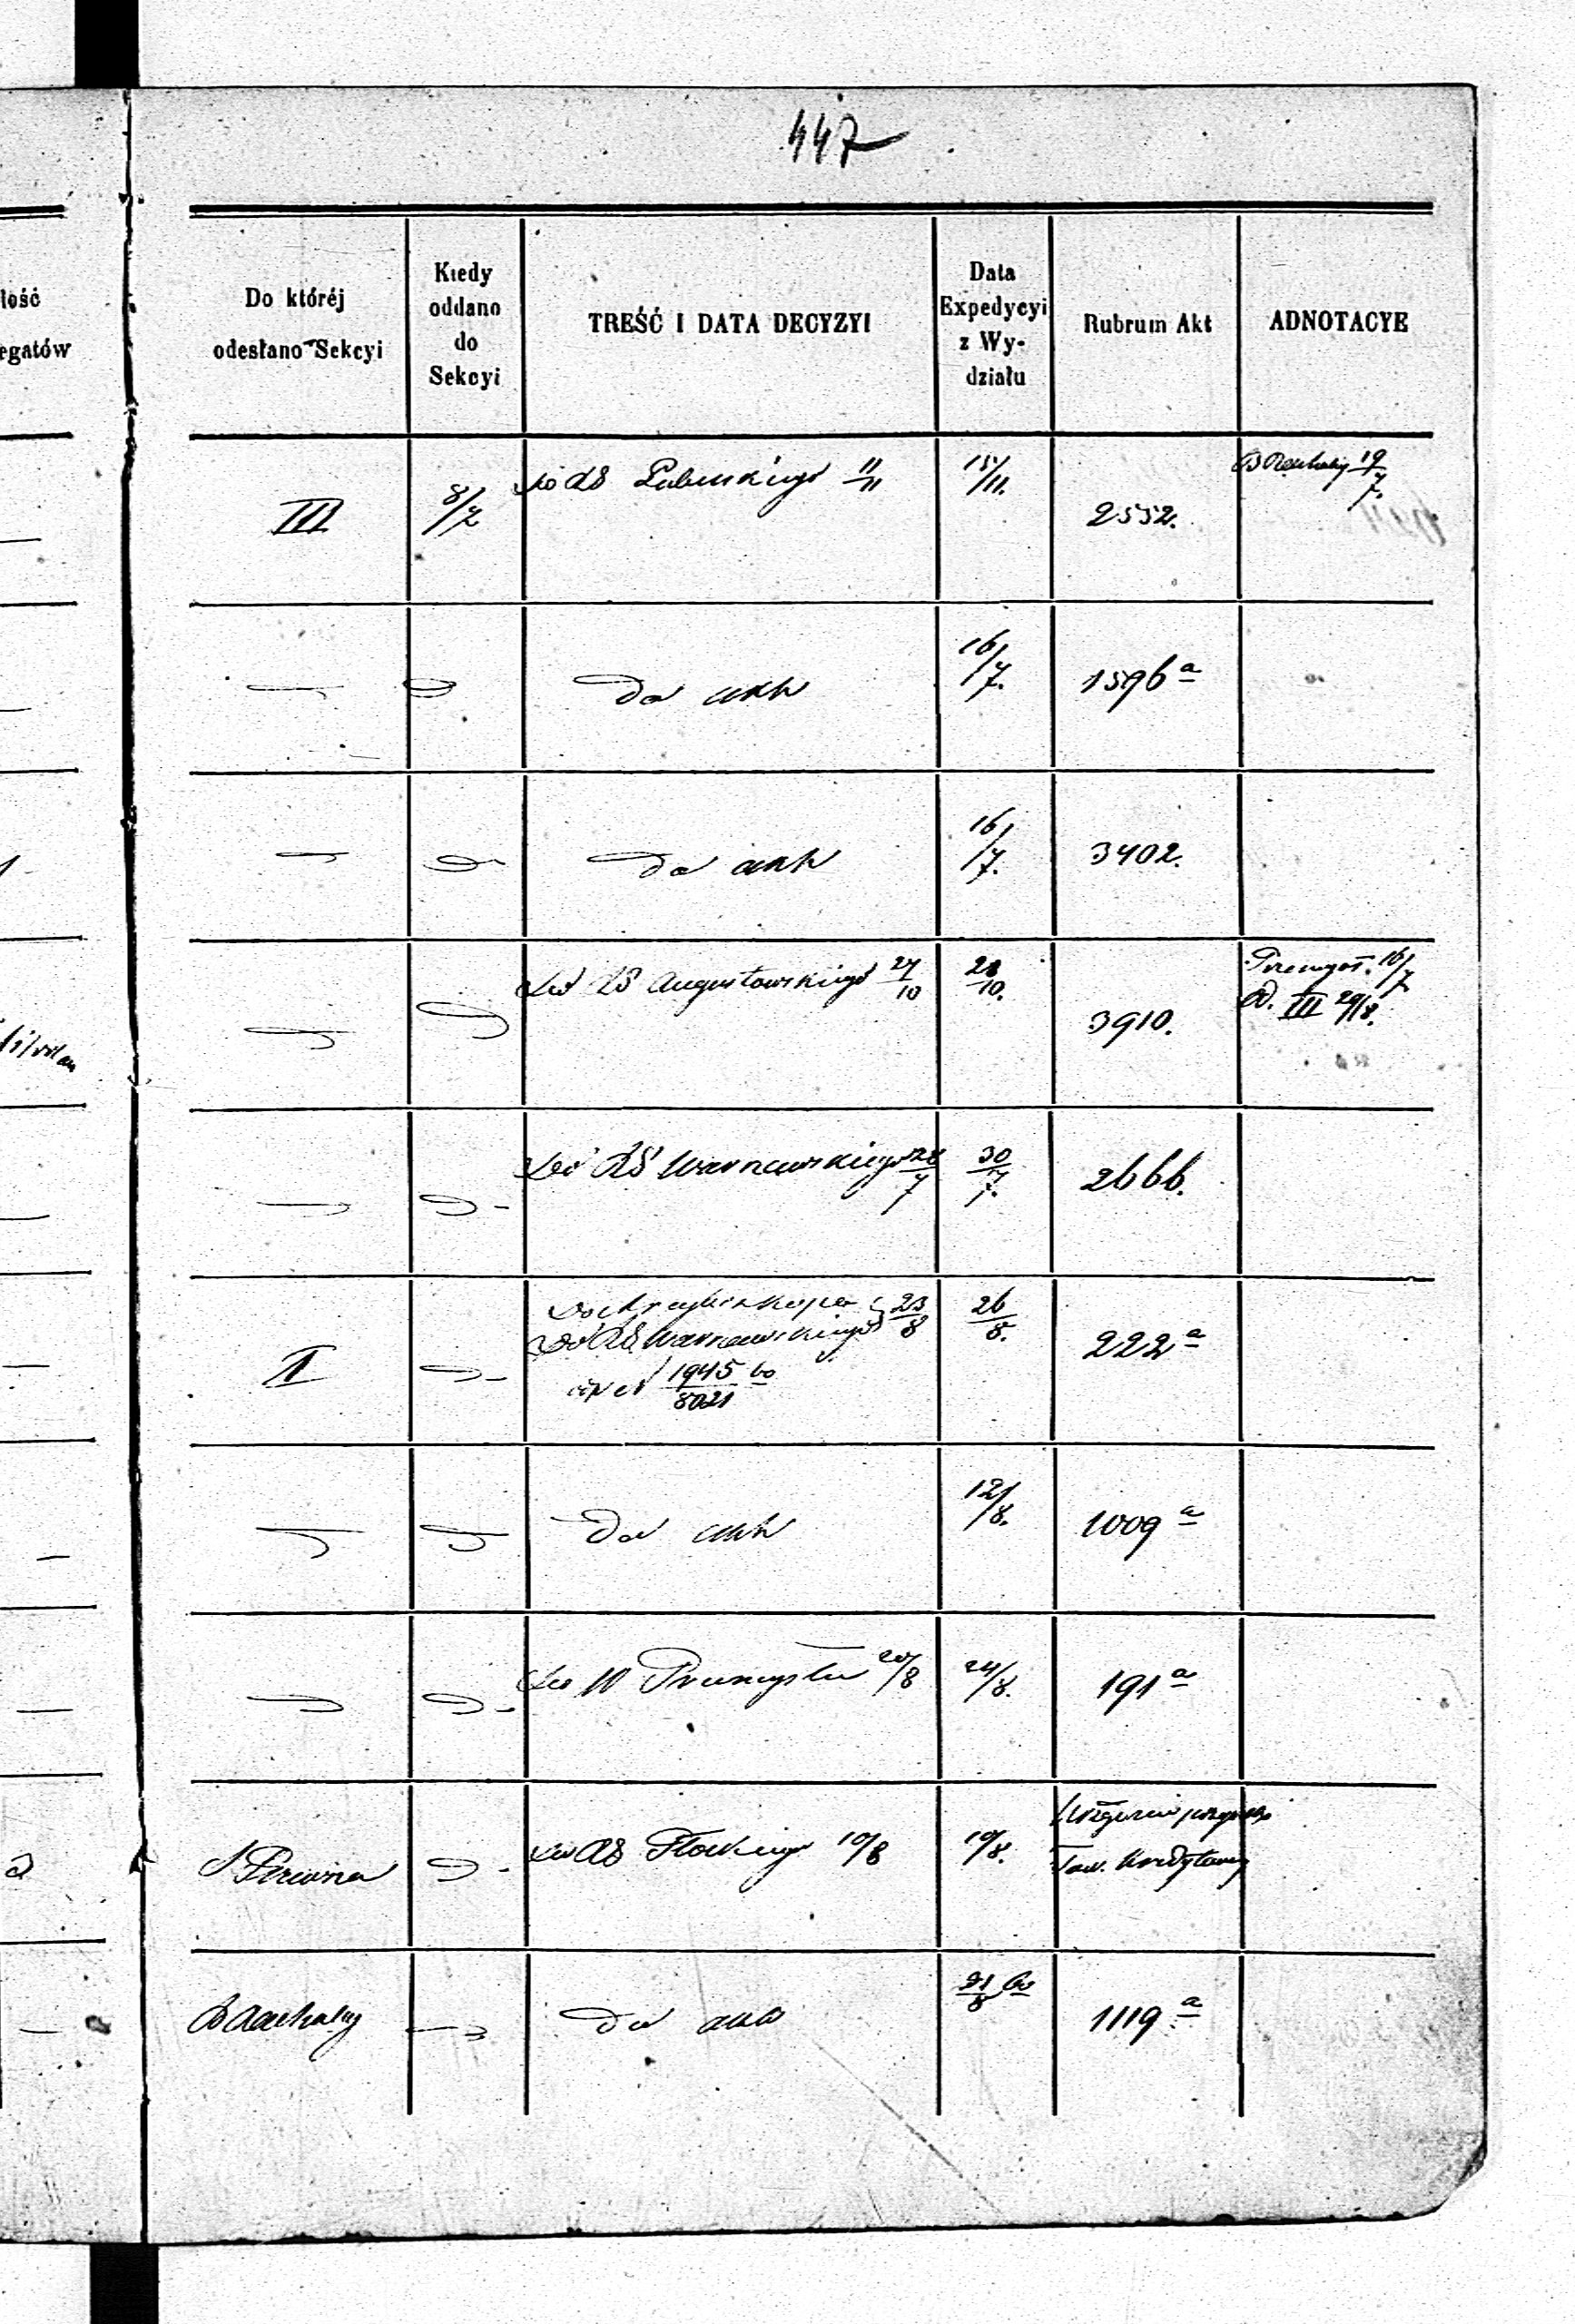 447
lość
egatów
Do któréj
odesłano Sekcyi
Kiedy
oddano
do
Sekcyi
TREŚĆ I DATA DECYZYI
Data
Expedycyi
z Wy-
działu
Rubrum Akt
ADNOTACYE
III
8/7
Do RG Lubelskiego 11/11
15/11.
2552.
19/7.
Do akt
16/7.
1596 a
Do akt
16/7.
3402.
Do RG Augustowskiego 27/10
28/10.
3910.
16/7
III 29/8.
Do RG Warszawskiego 28/7
30/7.
2666.
II
Do RG Warszawskiego 23/8
1945/8021
26/8.
222 a
Do akt
12/8.
1009 a
Do W Przemysłu 20/8
24/8.
191 a
Do RG Płockiego 10/8
10/8.
Tow. Kredytowy
Do akt
21/8
1119 a